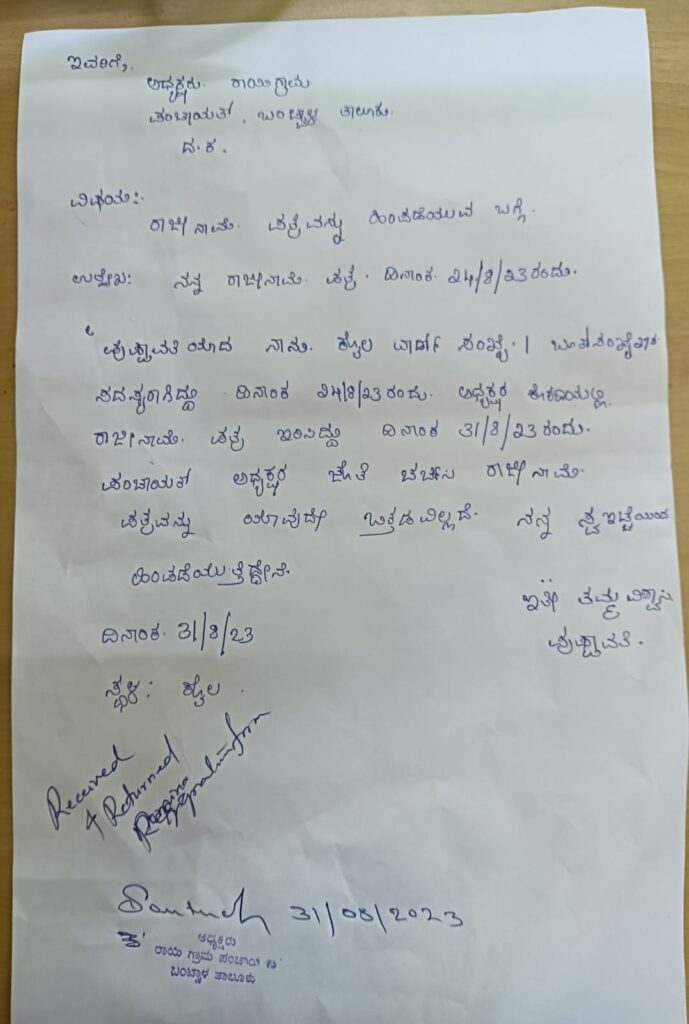 ಇವರಿಗೆ,
ಅಧ್ಯಕ್ಷರು ರಾಯಿ ಗ್ರಾಮ
ಪಂಚಾಯತ್, ಬಂಟ್ವಾಳ ತಾಲೂಕು.
ದ.ಕ.
ವಿಷಯ:-
ರಾಜೀನಾಮೆ ಪತ್ರವನ್ನು ಹಿಂಪಡೆಯುವ ಬಗ್ಗೆ.
ಉಲ್ಲೇಖ: ನನ್ನ ರಾಜೀನಾಮೆ ಪತ್ರ. ದಿನಾಂಕ 24/8/23 ರಂದು.
ಪುಷ್ಪಾವತಿಯಾದ ನಾನು. ಕೊಯಿಲ ವಾರ್ಡ್ ಸಂಖ್ಯೆ. 1
ಸದಸ್ಯರಾಗಿದ್ದು ದಿನಾಂಕ 24/8/23 ರಂದು. ಅಧ್ಯಕ್ಷರ
ರಾಜೀನಾಮೆ ಪತ್ರ ಇರಿಸಿದ್ದು ದಿನಾಂಕ 31/8/23 ರಂದು.
ಪಂಚಾಯತ್ ಅಧ್ಯಕ್ಷರ ಜೊತೆ ಚರ್ಚಿಸಿ ರಾಜೀನಾಮೆ
ಪತ್ರವನ್ನು ಯಾವುದೇ ಒತ್ತಡವಿಲ್ಲದೆ ನನ್ನ ಸ್ವಇಚ್ಛೆಯಿಂದ
ಹಿಂಪಡೆಯುತ್ತಿದ್ದೇನೆ.
ಇತೀ ತಮ್ಮ ವಿಶ್ವಾಸಿ
ಪುಷ್ಪಾವತಿ.
ದಿನಾಂಕ 31/8/23
ಸ್ಥಳ: ಕೊಯಿಲ.
Received
& Returned
Resignation form
31/08/2023
ಅಧ್ಯಕ್ಷರು
ರಾಯಿ ಗ್ರಾಮ ಪಂಚಾಯತಿ
ಬಂಟ್ವಾಳ ತಾಲೂಕು